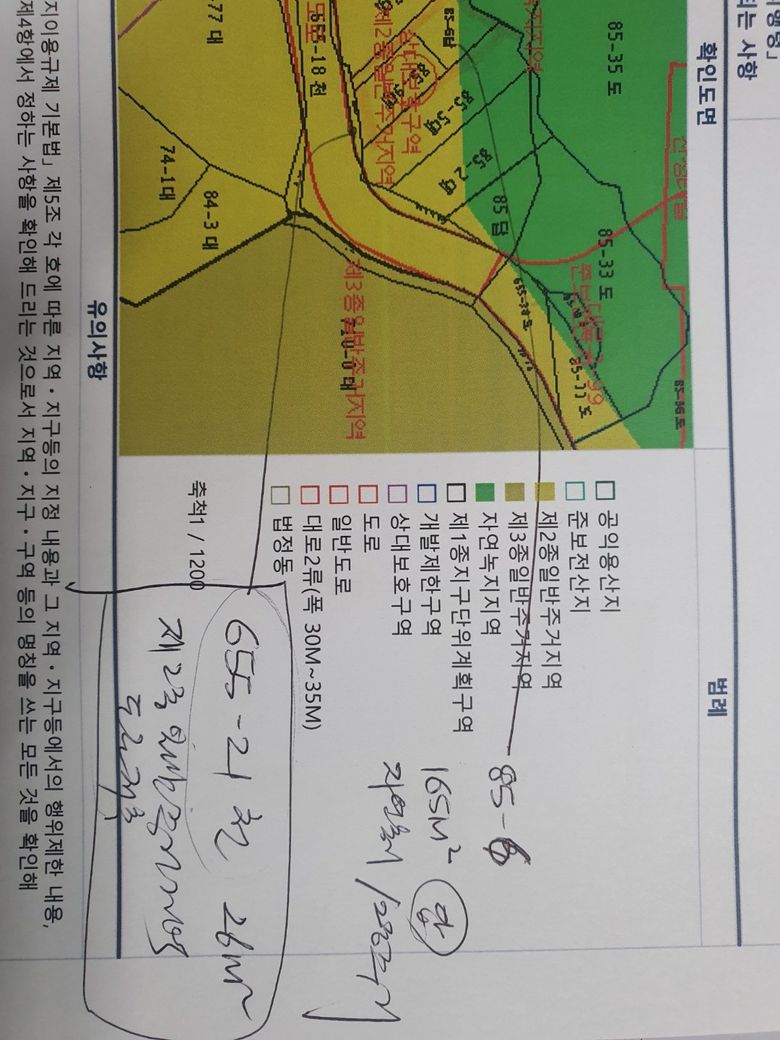 행등」
되는 사항
확인도면
범례
77 대
655-18 천
85-5대
85-2 대
85 답
85-35 도
85-33 도
85-36 도
74-1대
84-3 대
제2종일반주거지역
상대보호구역
제3종일반주거지역
공익용산지
준보전산지
제2종일반주거지역
제3종일반주거지역
자연녹지지역
제1종지구단위계획구역
개발제한구역
상대보호구역
도로
일반도로
대로2류(폭 30M~35M)
법정동
축척1 / 1200
85-6
165M²
답
자연녹지 /2종주거
655-21 천 26M²
제2종일반주거지역
도로저촉
유의사항
지이용규제 기본법」 제5조 각 호에 따른 지역·지구등의 지정 내용과 그 지역·지구등에서의 행위제한 내용,
제4항에서 정하는 사항을 확인해 드리는 것으로서 지역·지구·구역 등의 명칭을 쓰는 모든 것을 확인해